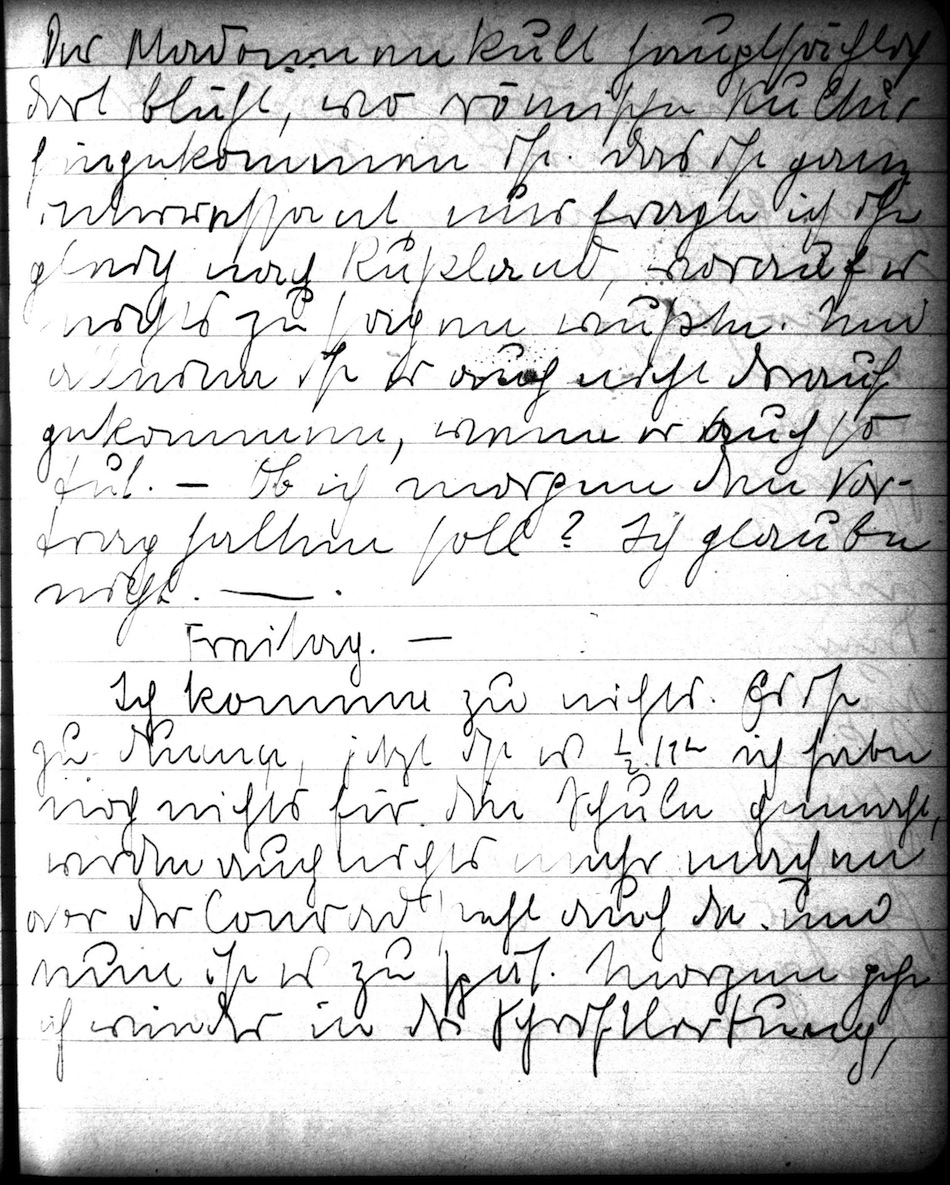 Der Madonnenkult hauptsächlich
dort blüht, wo römische Kultur
hingekommen ist. Das ist ganz
interressant nur fragte ich ihn
gleich nach Rußland, worauf er
nichts zu sagen wußte. Und
alleine ist er auch nicht darauf
gekommen, wenn er auch so
tut. – Ob ich morgen den Vor-
trag halten soll? Ich glaube
nicht. —.
Freitag. —
Ich komme zu nichts. Es ist
zu dumm, jetzt ist es ½ 12 ich habe
noch nichts für die Schule gemacht,
werde auch nichts mehr machen
aber der Conrad steht auch da und
nun ist es zu spät. Morgen gehe
ich wieder in die Schriftleitung,